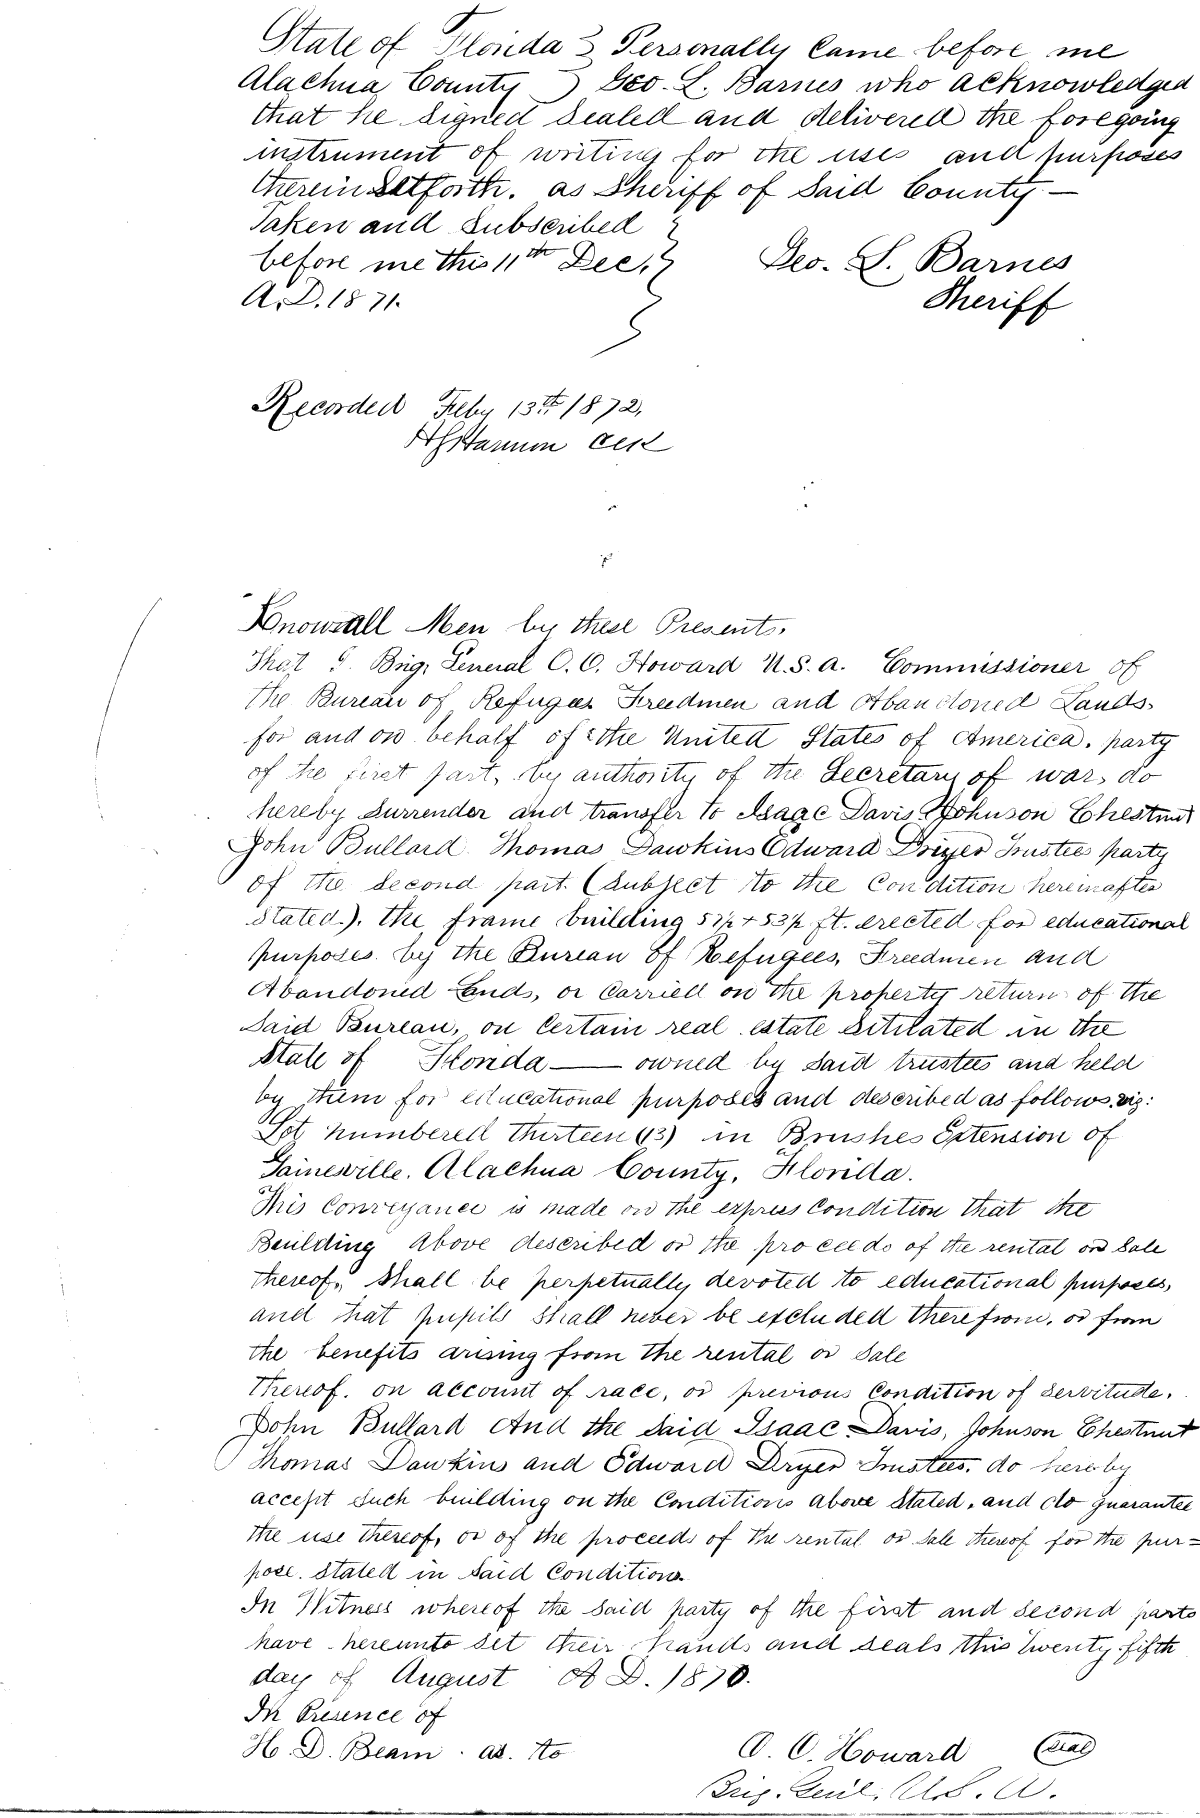 State of Florida } Personally Came before me
Alachua County } Geo. L. Barnes who acknowledged
that he signed sealed and delivered the foregoing
instrument of writing for the uses and purposes
therein Setforth. as Sheriff of Said County —
Taken and Subscribed }
before me this 11th Dec. } Geo. L. Barnes
A.D. 1871. } Sheriff
Recorded Feby 13th 1872,
Clk
Know all Men by these Presents.
That I. Brig. General O. O. Howard U.S.A. Commissioner of
the Bureau of Refugees Freedmen and Abandoned Lands.
for and on behalf of the United States of America. party
of the first part, by authority of the Secretary of war, do
hereby Surrender and transfer to Isaac Davis Johnson Chestnut
John Bullard Thomas Dawkins Edward Dryer Trustees party
of the Second part. (Subject to the Condition hereinafter
Stated.). the frame building ft. erected for educational
purposes by the Bureau of Refugees, Freedmen and
Abandoned Lands, or Carried on the property return of the
Said Bureau, on Certain real estate Situated in the
State of Florida — owned by Said trustees and held
by them for educational purposes and described as follows, viz:
Lot numbered thirteen (13) in Brushes Extension of
Gainesville. Alachua County, Florida.
This Conveyance is made on the express Condition that the
Building Above described or the proceeds of the rental or Sale
thereof, shall be perpetually devoted to educational purposes,
and that pupils shall never be excluded therefrom, or from
the benefits arising from the rental or Sale
thereof. on account of race, or previous Condition of servitude.
John Bullard And the Said Isaac Davis, Johnson Chestnut
Thomas Dawkins and Edward Dryer Trustees, do hereby
accept such building on the Conditions above Stated, and do guarantee
the use thereof, or of the proceeds of the rental or Sale thereof for the pur=
pose. Stated in Said Conditions
In Witness whereof the Said party of the first and second parts
have hereunto Set their hands and seals this Twenty fifth
day of August A D. 1870.
In Presence of
H. D. Beam. as. to O. O. Howard (seal)
Brig. Genl. U.S. A.